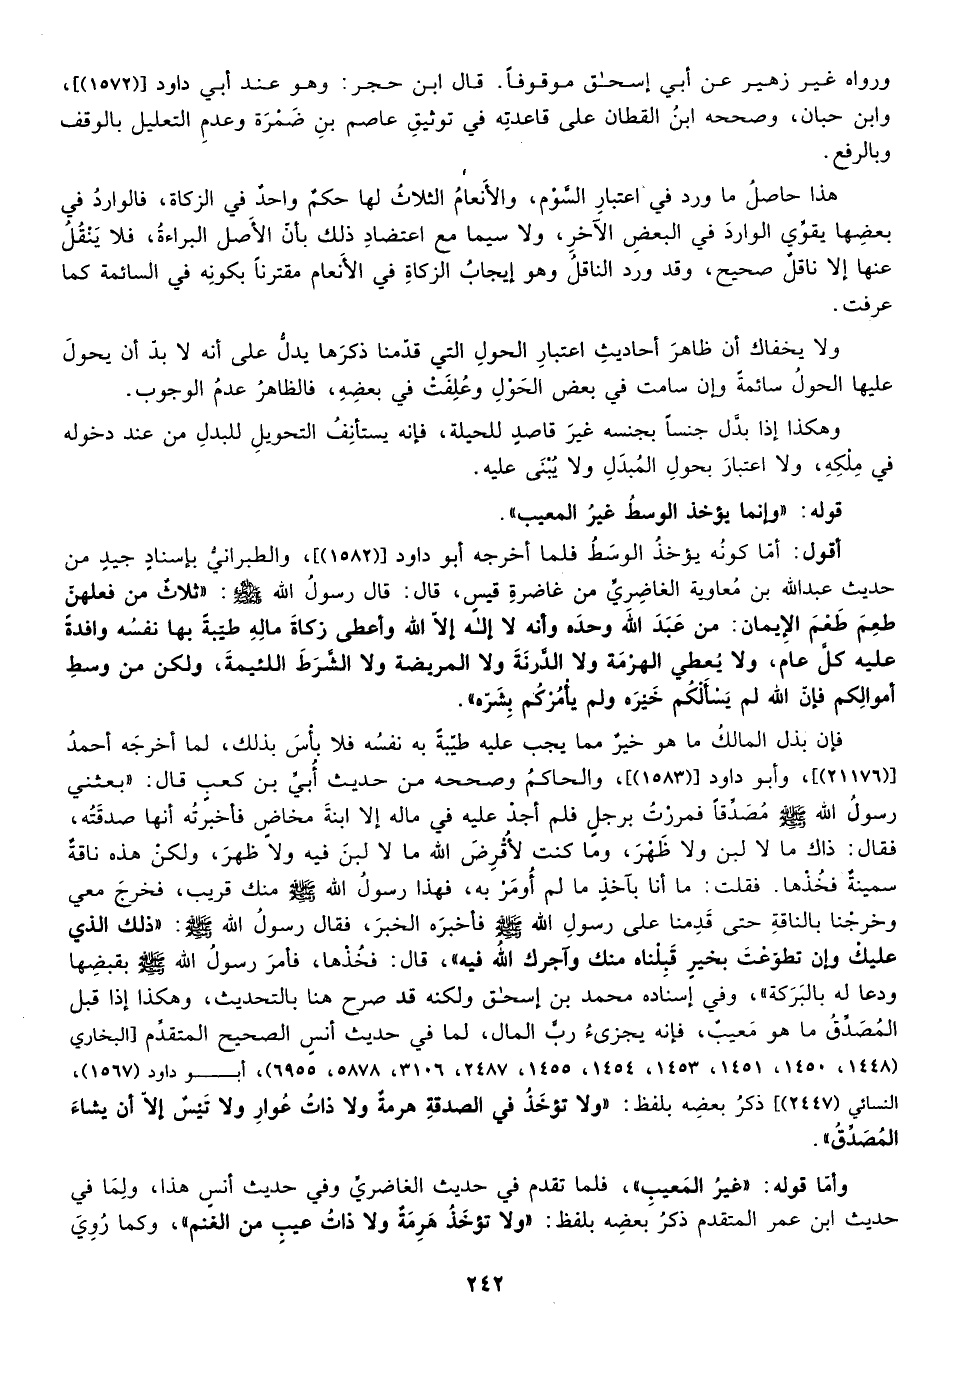 ورواه غير زهير عن أبي إسحٰق موقوفاً. قال ابن حجر: وهو عند أبي داود [(١٥٧٢)]،
وابن حبان، وصححه ابنُ القطان على قاعدتِه في توثيقِ عاصم بنِ ضَمْرَة وعدمِ التعليل بالوقف
وبالرفع.
هذا حاصلُ ما ورد في اعتبارِ السَّوْم، والأَنعامُ الثلاثُ لها حكمٌ واحدٌ في الزكاة، فالواردُ في
بعضِها يقوِّي الواردَ في البعضِ الآخرِ، ولا سيما مع اعتضادِ ذلك بأنّ الأصل البراءةُ، فلا يَنْقُلُ
عنها إلا ناقلٌ صحيح، وقد ورد الناقلُ وهو إيجابُ الزكاةِ في الأنعام مقترناً بكونِه في السائمة كما
عرفت.
ولا يخفاك أن ظاهرَ أحاديثِ اعتبارِ الحولِ التي قدّمنا ذكرَها يدلُّ على أنه لا بدّ أن يحولَ
عليها الحولُ سائمةً وإن سامت في بعض الحَوْلِ وعُلِفَتْ في بعضِهِ، فالظاهرُ عدمُ الوجوب.
وهكذا إذا بدَّل جنساً بجنسه غيرَ قاصدٍ للحيلة، فإنه يستأنِفُ التحويلِ للبدلِ من عند دخوله
في مِلْكِهِ، ولا اعتبارَ بحولِ المُبدَلِ ولا يُبْنَى عليه.
قوله: «وإنما يؤخذ الوسطُ غيرُ المعيب».
أقول: أمّا كونُه يؤخذُ الوسَطُ فلما أخرجه أبو داود [(١٥٨٢)]، والطبرانيُّ بإسنادٍ جيدٍ من
حديث عبدالله بن مُعاوية الغاضِرِيِّ من غاضرةِ قيسٍ، قال: قال رسولُ الله ﷺ: «ثلاثٌ من فعلهنّ
طعِمَ طَعْمَ الإيمان: من عَبَدَ اللهَ وحدَه وأنه لا إلٰه إلاّ الله وأعطى زكاةَ مالِهِ طيّبةً بها نفسُه وافدةً
عليه كلَّ عام، ولا يُعطي الهرْمَة ولا الدَّرنَةَ ولا المريضة ولا الشَّرَطَ اللئيمةَ، ولكن من وسطِ
أموالِكم فإنّ الله لم يَسْأَلْكُم خَيْرَه ولم يأْمُرْكُم بِشَرّه».
فإن بذل المالكُ ما هو خيرٌ مما يجب عليه طيّبةً به نفسُه فلا بأْسَ بذلك، لما أخرجَه أحمدُ
[(٢١١٧٦)]، وأبو داود [(١٥٨٣)]، والحاكمُ وصححه من حديث أُبيِّ بن كعبٍ قال: «بعثني
رسولُ الله ﷺ مُصَدِّقاً فمررْتُ برجلٍ فلم أجدْ عليه في ماله إلا ابنةَ مخاضٍ فأخبرتُه أنها صدقتُه،
فقال: ذاك ما لا لبن ولا ظَهْرَ، وما كنت لأُقْرِضَ الله ما لا لبنَ فيه ولا ظهرَ، ولكنْ هذه ناقةٌ
سمينةٌ فخُذْها. فقلت: ما أنا بآخذٍ ما لم أُومَرْ به، فهذا رسولُ الله ﷺ منك قريب، فخرجَ معي
وخرجْنا بالناقةِ حتى قَدِمنا على رسولِ الله ﷺ فأخبَره الخبرَ، فقال رسولُ الله ﷺ: «ذلك الذي
عليكْ وإن تطوّعْتَ بخيرٍ قَبِلْناه منك وآجرك اللهُ فيه»، قال: فخُذْها، فأمرَ رسولُ الله ﷺ بقبضِها
ودعا له بالبَرَكة»، وفي إسناده محمد بن إسحٰق ولكنه قد صرح هنا بالتحديث، وهكذا إذا قبل
المُصَدِّقُ ما هو مَعيبٌ، فإنه يجزىءُ ربَّ المال، لما في حديث أنسٍ الصحيح المتقدِّم [البخاري
(١٤٤٨، ١٤٥٠، ١٤٥١، ١٤٥٣، ١٤٥٤، ١٤٥٥، ٢٤٨٧، ٣١٠٦، ٥٨٧٨، ٦٩٥٥)، أبــو داود (١٥٦٧)،
النسائي (٢٤٤٧)] ذكرُ بعضِه بلفظ: «ولا تؤخَذُ في الصدقةِ هرمةٌ ولا ذاتُ عُوارٍ ولا تَيْسٌ إلاّ أن يشاءَ
المُصَدِّقُ».
وأمّا قوله: «غيرُ المَعيبِ»، فلما تقدم في حديث الغاضريِّ وفي حديث أنسٍ هذا، ولِمَا في
حديث ابن عمر المتقدم ذكرُ بعضِه بلفظ: «ولا تؤخَذُ هَرِمَةٌ ولا ذاتُ عيبٍ من الغنم»، وكما رُوِيَ
٢٤٢